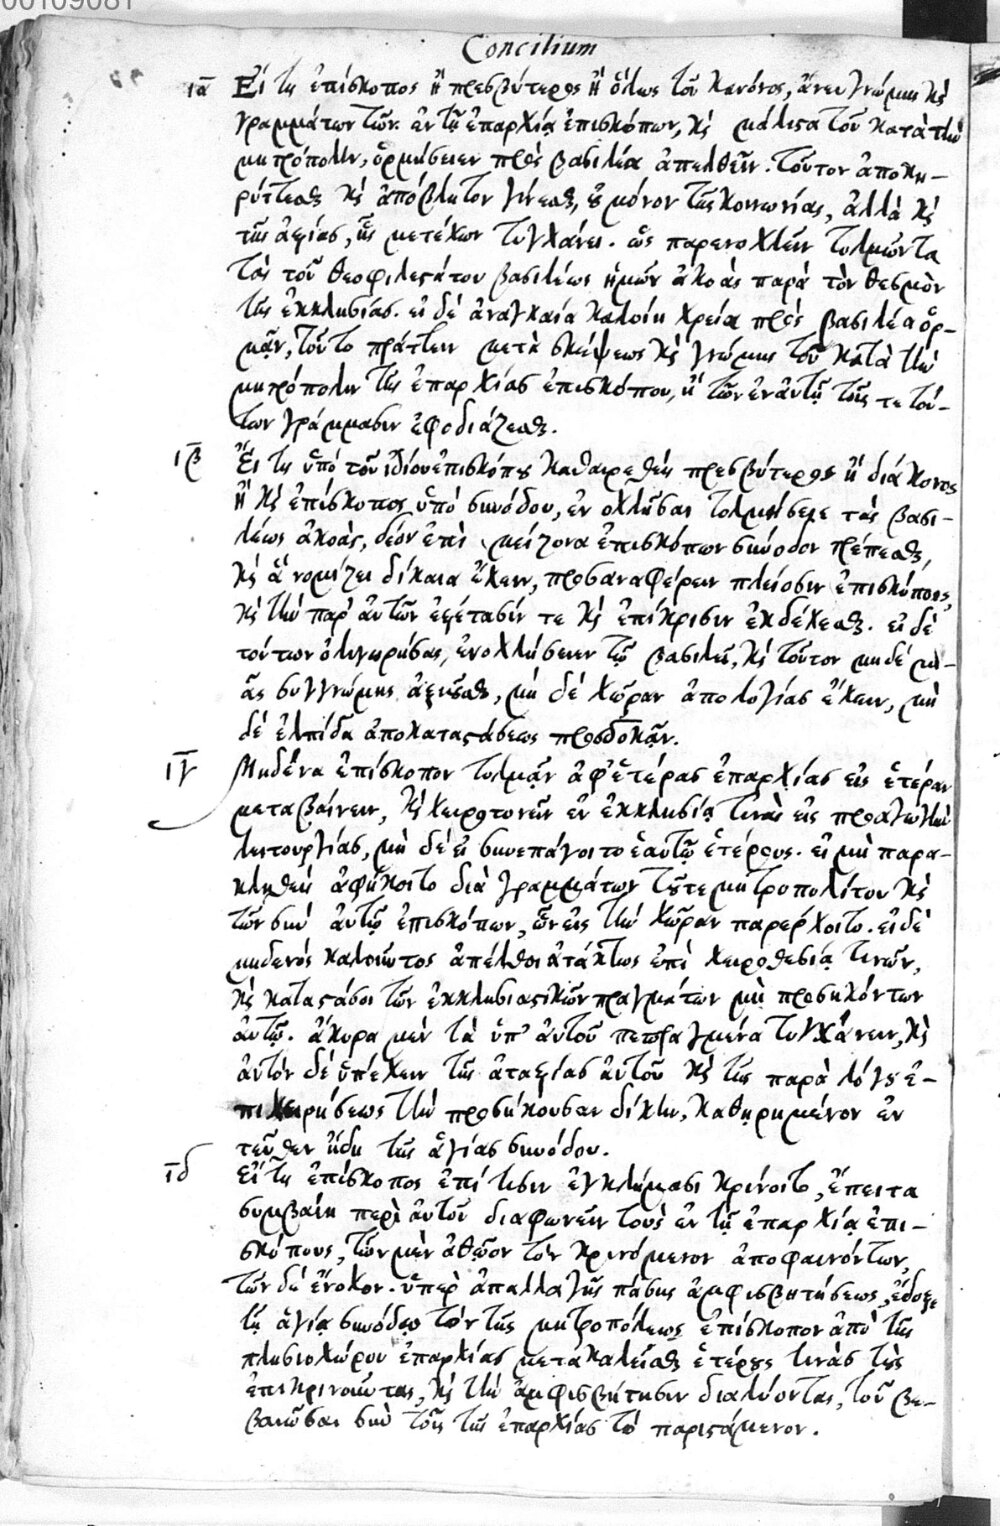 00109081
Concilium
ια Εἴ τις ἐπίσκοπος ἢ πρεσβύτερος ἢ ὅλως τοῦ κανόνος, ἄνευ γνώμης κὶ
γραμμάτων τῶν ἐν τῇ ἐπαρχίᾳ ἐπισκόπων, κὶ μάλιστα τοῦ κατὰ τὴν
μητρόπολιν, ὁρμήσειεν πρὸς βασιλέα ἀπελθεῖν. τοῦτον ἀποκη-
ρύττεσθαι κὶ ἀπόβλητον γίνεσθαι, οὐ μόνον τῆς κοινωνίας, ἀλλὰ κὶ
τῆς ἀξίας, ἧς μετέχων τυγχάνει. ὡς παρενοχλεῖν τολμῶντα
τὰς τοῦ θεοφιλεστάτου βασιλέως ἡμῶν ἀκοὰς παρὰ τὸν θεσμὸν
τῆς ἐκκλησίας. εἰ δὲ ἀναγκαία καλοίη χρεία πρὸς βασιλέα ὁρ-
μᾷν, τοῦτο πράττειν μετὰ σκέψεως κὶ γνώμης τοῦ κατὰ τὴν
μητρόπολιν τῆς ἐπαρχίας ἐπισκόπου, κὶ τῶν ἐν αὐτῇ τοῖς τε τού-
των γράμμασιν ἐφοδιάζεσθαι.
ιβ Εἴ τις ὑπὸ τοῦ ἰδίου ἐπισκόπου καθαιρεθεὶς πρεσβύτερος ἢ διάκονος
ἢ κὶ ἐπίσκοπος ὑπὸ συνόδου, ἐνοχλῆσαι τολμήσειε τὰς βασι-
λέως ἀκοὰς, δέον ἐπὶ μείζονα ἐπισκόπων σύνοδον τρέπεσθαι,
κὶ ἃ νομίζει δίκαια ἔχειν, προσαναφέρειν πλείοσιν ἐπισκόποις,
κὶ τὴν παρ' αὐτῶν ἐξέτασίν τε κὶ ἐπίκρισιν ἐκδέχεσθαι. εἰ δὲ
τούτων ὀλιγωρήσας, ἐνοχλήσειεν τῷ βασιλεῖ, κὶ τοῦτον μηδεμι-
ᾶς συγγνώμης ἀξιοῦσθαι, μὴ δὲ χῶραν ἀπολογίας ἔχειν, μὴ
δὲ ἐλπίδα ἀποκαταστάσεως προσδοκᾷν.
ιγ Μηδένα ἐπίσκοπον τολμᾷν ἀφ' ἑτέρας ἐπαρχίας εἰς ἑτέραν
μεταβαίνειν, κὶ χειροτονεῖν ἐν ἐκκλησίᾳ τινὰς εἰς προαγωγὴν
λειτουργίας, μὴ δὲ εἰ συνεπάγοιτο ἑαυτῷ ἑτέρους. εἰ μὴ παρα-
κληθεὶς ἀφίκοιτο διὰ γραμμάτων τοῦ τε μητροπολίτου κὶ
τῶν σὺν αὐτῷ ἐπισκόπων, ὧν εἰς τὴν χῶραν παρέρχοιτο. εἰ δὲ
μηδενὸς καλοῦντος ἀπέλθοι ἀτάκτως ἐπὶ χειροθεσίᾳ τινῶν,
κὶ καταστάσει τῶν ἐκκλησιαστικῶν πραγμάτων μὴ προσηκόντων
αὐτῷ. ἄκυρα μὲν τὰ ὑπ' αὐτοῦ πεπραγμένα τυγχάνειν, κὶ
αὐτὸν δὲ ὑπέχειν τῆς ἀταξίας αὐτοῦ κὶ τῆς παρὰ λόγον ἐ-
πιχειρήσεως τὴν προσήκουσαν δίκην, καθῃρημένον ἐν
τεῦθεν ἤδη τῆς ἁγίας συνόδου.
ιδ Εἴ τις ἐπίσκοπος ἐπί τισιν ἐγκλήμασι κρίνοιτο, ἔπειτα
συμβαίη περὶ αὐτοῦ διαφωνεῖν τοὺς ἐν τῇ ἐπαρχίᾳ ἐπι-
σκόπους, τῶν μὲν ἀθῷον τὸν κρινόμενον ἀποφαινόντων,
τῶν δὲ ἔνοχον. ὑπὲρ ἀπαλλαγῆς πάσης ἀμφισβητήσεως, ἔδοξε
τῇ ἁγίᾳ συνόδῳ τὸν τῆς μητροπόλεως ἐπίσκοπον ἀπὸ τῆς
πλησιοχώρου ἐπαρχίας μετακαλεῖσθαι ἑτέρους τινὰς τοὺς
ἐπικρινοῦντας, κὶ τὴν ἀμφισβήτησιν διαλύοντας, τοῦ βε-
βαιῶσαι σὺν τοῖς τῆς ἐπαρχίας τὸ παριστάμενον.